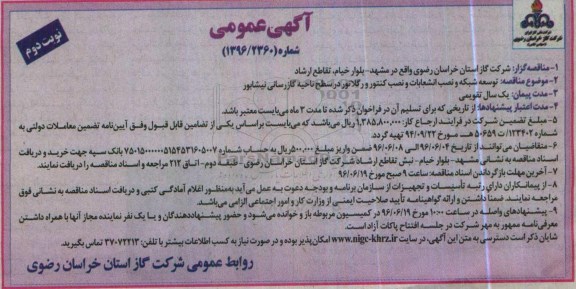 آگهی عمومی
شماره (۱۳۹۶/۲۳۶۰)
نوبت دوم
شرکت گاز استان خراسان رضوی
۱- مناقصه‌گزار: شرکت گاز استان خراسان رضوی واقع در مشهد-بلوار خیام، تقاطع ارشاد
۲- موضوع مناقصه: توسعه شبکه و نصب انشعابات و نصب کنتور و رگلاتور در سطح ناحیه گازرسانی نیشابور
۳- مدت پیمان: یک سال تقویمی
۴- مدت اعتبار پیشنهادها: از تاریخی که برای تسلیم آن در فراخوان ذکر شده تا مدت ۳ ماه می‌بایست معتبر باشد.
۵- مبلغ تضمین شرکت در فرایند ارجاع کار: ۱,۳۸۵,۸۰۰,۰۰۰ ریال می‌باشد که می‌بایست براساس یکی از تضامین قابل قبول وفق آیین‌نامه تضمین معاملات دولتی به
شماره ۱۲۳۴۰۲/ت ۵۰۶۵۹ هـ مورخ ۹۴/۰۹/۲۲ تهیه گردد.
۶- متقاضیان می‌توانند از تاریخ ۹۶/۰۶/۰۴ الی ۹۶/۰۶/۰۸ ضمن واریز مبلغ ۵۰۰,۰۰۰ ریال به حساب شماره بانک سپه جهت خرید و دریافت
اسناد مناقصه به نشانی مشهد- بلوار خیام- نبش تقاطع ارشاد شرکت گاز استان خراسان رضوی- طبقه دوم- اتاق ۲۱۲ مراجعه و اسناد مناقصه را دریافت نمایند.
۷- آخرین مهلت بازگرداندن اسناد مناقصه: ساعت ۹ صبح مورخ ۹۶/۰۶/۱۹
۸- از پیمانکاران دارای رتبه تأسیسات و تجهیزات از سازمان برنامه و بودجه دعوت به عمل می‌آید به‌منظور اعلام آمادگی کتبی و دریافت اسناد مناقصه به نشانی فوق
مراجعه نمایند. ضمنا داشتن و ارائه گواهینامه تأیید صلاحیت ایمنی از وزارت کار و امور اجتماعی الزامی می‌باشد.
۹- پیشنهادهای واصله در ساعت ۱۰:۰۰ مورخ ۹۶/۰۶/۱۹ در کمیسیون مربوطه باز و خوانده می‌شود و حضور پیشنهاددهندگان و یا یک نفر نماینده مجاز آنها با همراه داشتن
معرفی‌نامه ممهور به مهر شرکت در جلسه افتتاح پاکات آزاد است.
شایان ذکر است دسترسی به متن این آگهی، در سایت www.nigc-khrz.ir امکان‌پذیر بوده و در صورت نیاز به کسب اطلاعات بیشتر با تلفن: ۳۷۰۷۲۲۱۳ تماس بگیرید.
روابط عمومی شرکت گاز استان خراسان رضوی